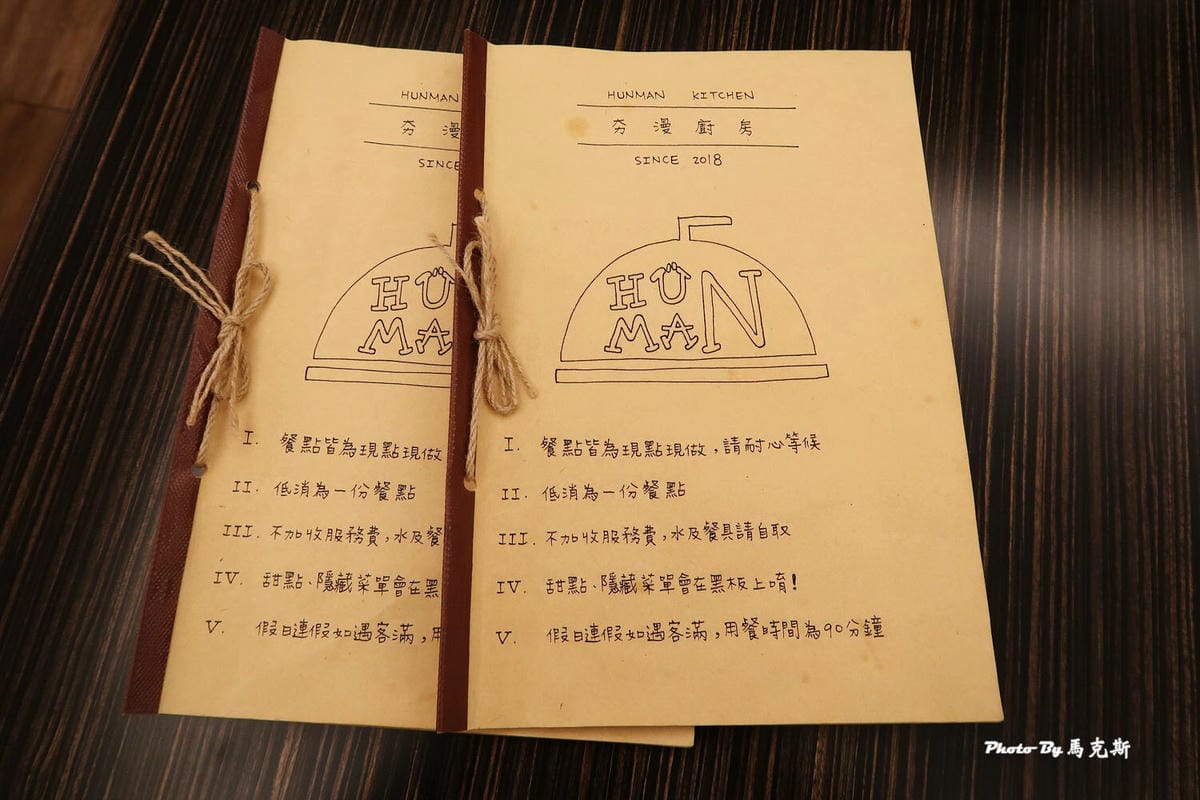 HUNMAN
夯 漫
SINCE
HU
MA
I. 餐點皆為現點現做
II. 低消為一份餐點
III. 不加收服務費，水及餐
IV. 甜點、隱藏菜單會在黑
V. 假日連假如遇客滿，用
HUNMAN KITCHEN
夯 漫 廚 房
SINCE 2018
HUN
MAN
I. 餐點皆為現點現做，請耐心等候
II. 低消為一份餐點
III. 不加收服務費，水及餐具請自取
IV. 甜點、隱藏菜單會在黑板上唷！
V. 假日連假如遇客滿，用餐時間為90分鐘
Photo By 馬克斯